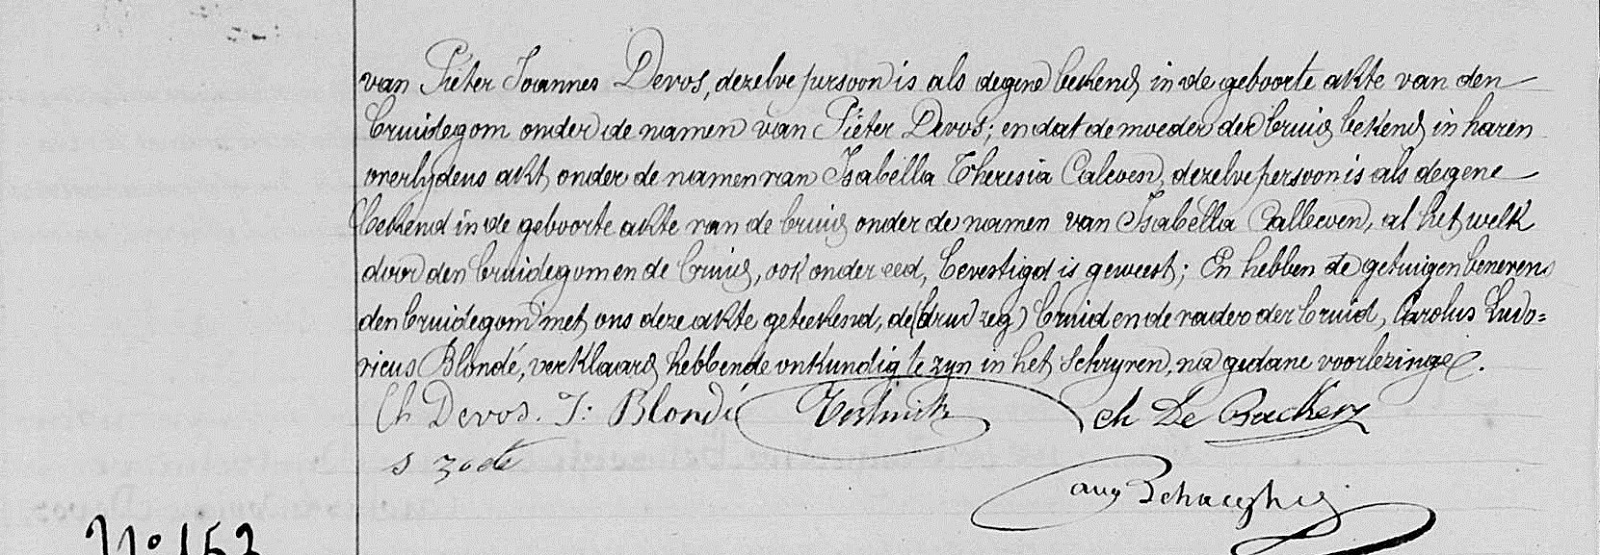 van Pieter Joannes Devos, dezelve persoon is als degene bekend in de geboorte akte van den
bruidegom onder de namen van Pieter Devos; en dat de moeder der bruid bekend in haren
overlydens akt, onder de namen van Isabella Theresia Caleven, dezelve persoon is als degene
bekend in de geboorte akte van de bruid onder de namen van Isabella Calleven, al het welk
door den bruidegom en de bruid, ook onder eed, bevestigd is geweest; En hebben de getuigen benevens
den bruidegom met ons deze akte geteekend, de (drud zeg) bruid en de vader der bruid, Carolus Ludo=
vicus Blondé, verklaard hebbende onkundig te zyn in het schryven, na gedane voorlezinge.
Ch Devos. J: Blondé ch De Backer
s
aug
N° 153